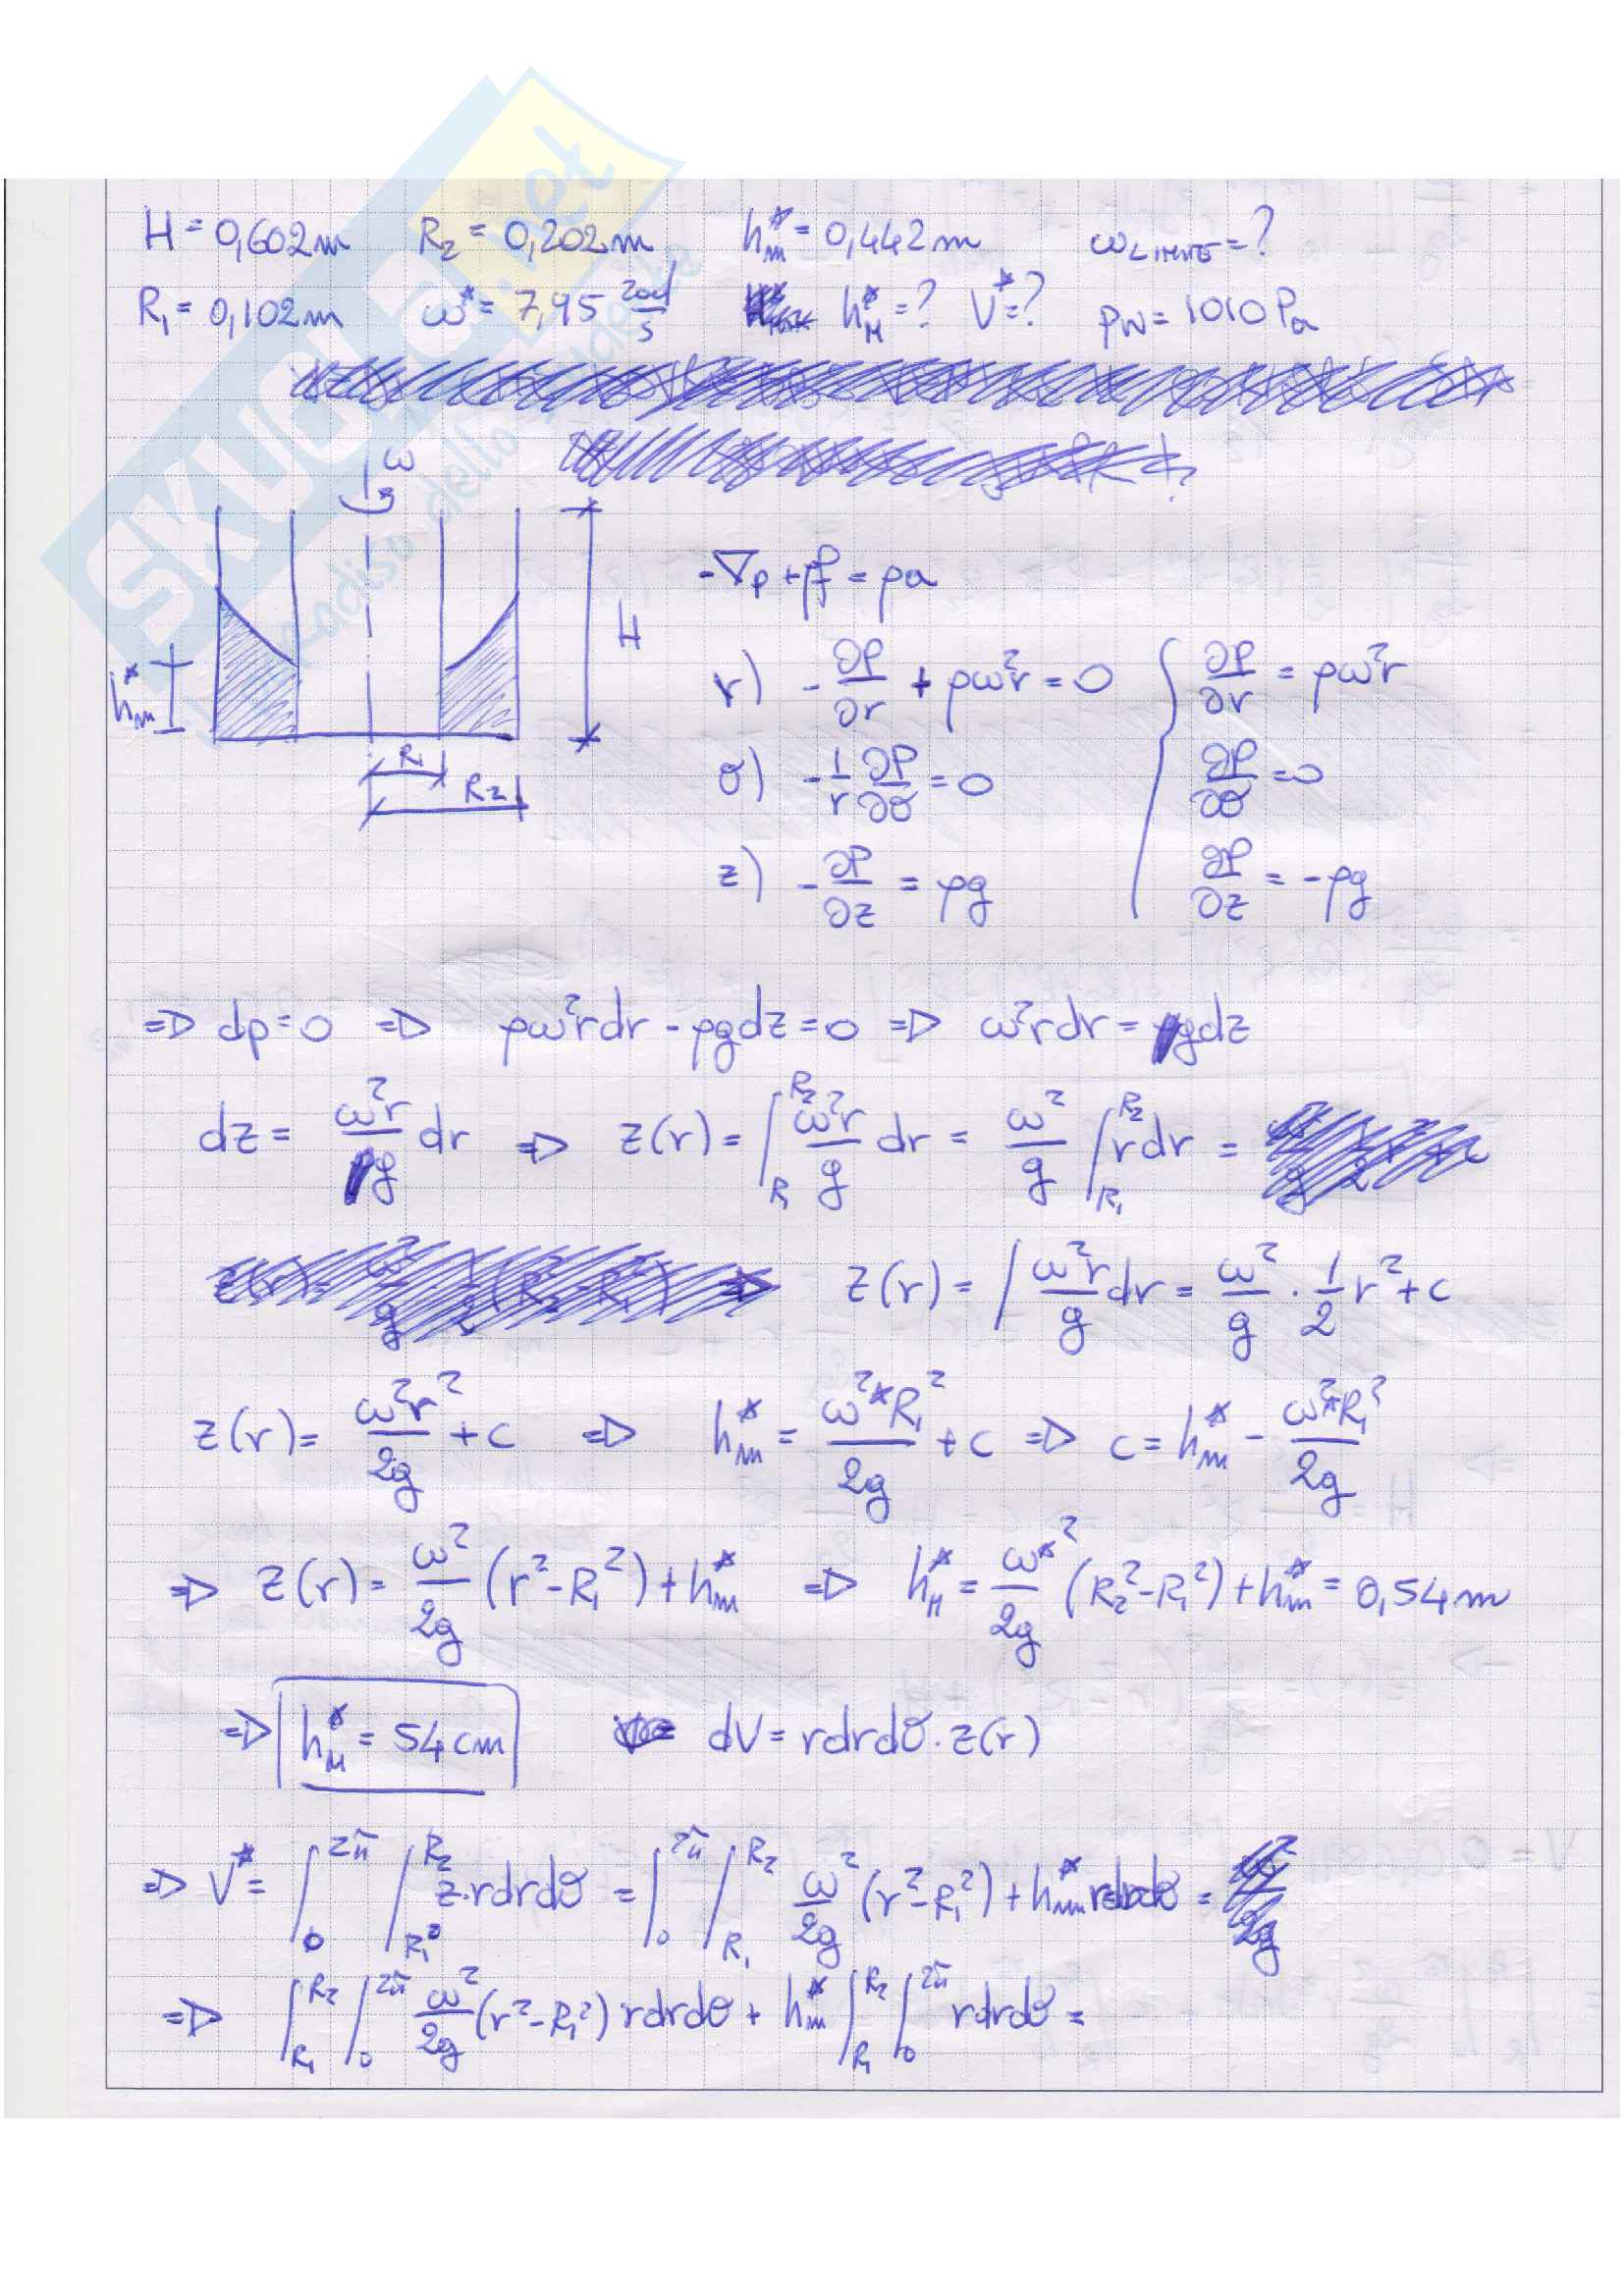 H = 0,602 m R₂ = 0,202 m h*ₘ = 0,442 m ω_LIMITE = ?
R₁ = 0,102 m ω* = 7,95 rad/s h*_M = ? V* = ? ρw = 1010 Pa
SKUOLA.net
ω
-∇p + ρf = ρa
H
r) -∂P/∂r + ρω²r = 0 { ∂P/∂r = ρω²r
h*ₘ
R₁
θ) -1/r ∂P/∂θ = 0 ∂P/∂θ = 0
R₂
z) -∂P/∂z = ρg ∂P/∂z = -ρg
=> dp = 0 => ρω²rdr - ρgdz = 0 => ω²rdr = gdz
dz = ω²r/g dr => z(r) = ∫_R₁^R₂ ω²r/g dr = ω²/g ∫_R₁^R₂ rdr =
z(r) = ∫ ω²r/g dr = ω²/g · 1/2 r² + c
z(r) = ω²r²/2g + c => h*ₘ = ω²*R₁²/2g + c => c = h*ₘ - ω²*R₁²/2g
=> z(r) = ω²/2g (r² - R₁²) + h*ₘ => h*_M = ω*²/2g (R₂² - R₁²) + h*ₘ = 0,54 m
=> h*_M = 54 cm dV = rdrdθ · z(r)
=> V* = ∫₀^2π ∫_R₁^R₂ z·rdrdθ = ∫₀^2π ∫_R₁^R₂ ω²/2g (r² - R₁²) + h*ₘ rdrdθ =
=> ∫_R₁^R₂ ∫₀^2π ω²/2g (r² - R₁²) rdrdθ + h*ₘ ∫_R₁^R₂ ∫₀^2π rdrdθ =